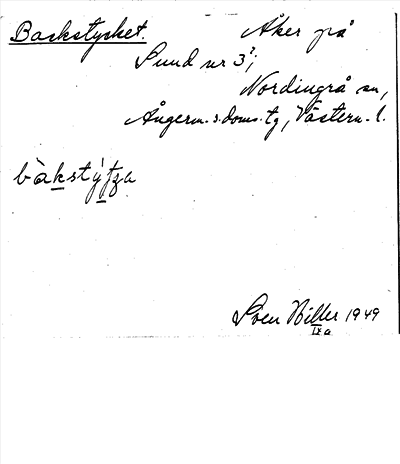 Backstycket. Åker på
Sund nr 3²;
Nordingrå sn,
Ångerm. s. doms. tg, Västern. l.
bàkstýt̠za
Sven Biller 1949
IX a